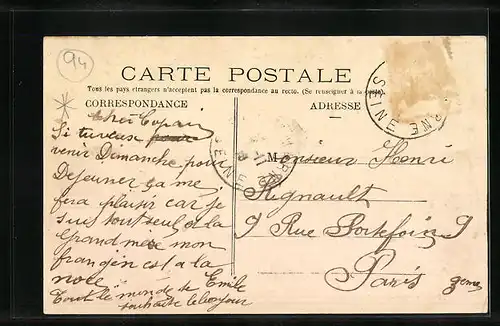 94
CARTE POSTALE
Tous les pays étrangers n'acceptent pas la correspondance au recto. (Se renseigner à la poste).
CORRESPONDANCE
ADRESSE
cher Copain
Si tu veuse pour
venir Dimanche pour
Dejeuner ça me
fera plaisir car je
suis tout seul a la
Grand mere mon
frangin est a la
noce
Emile
Tout le monde te
souhaite le bonjour
Monsieur Henri
Rignault
9 Rue Portefoin 9
Paris 3eme
SEINE
MARNE
SEINE